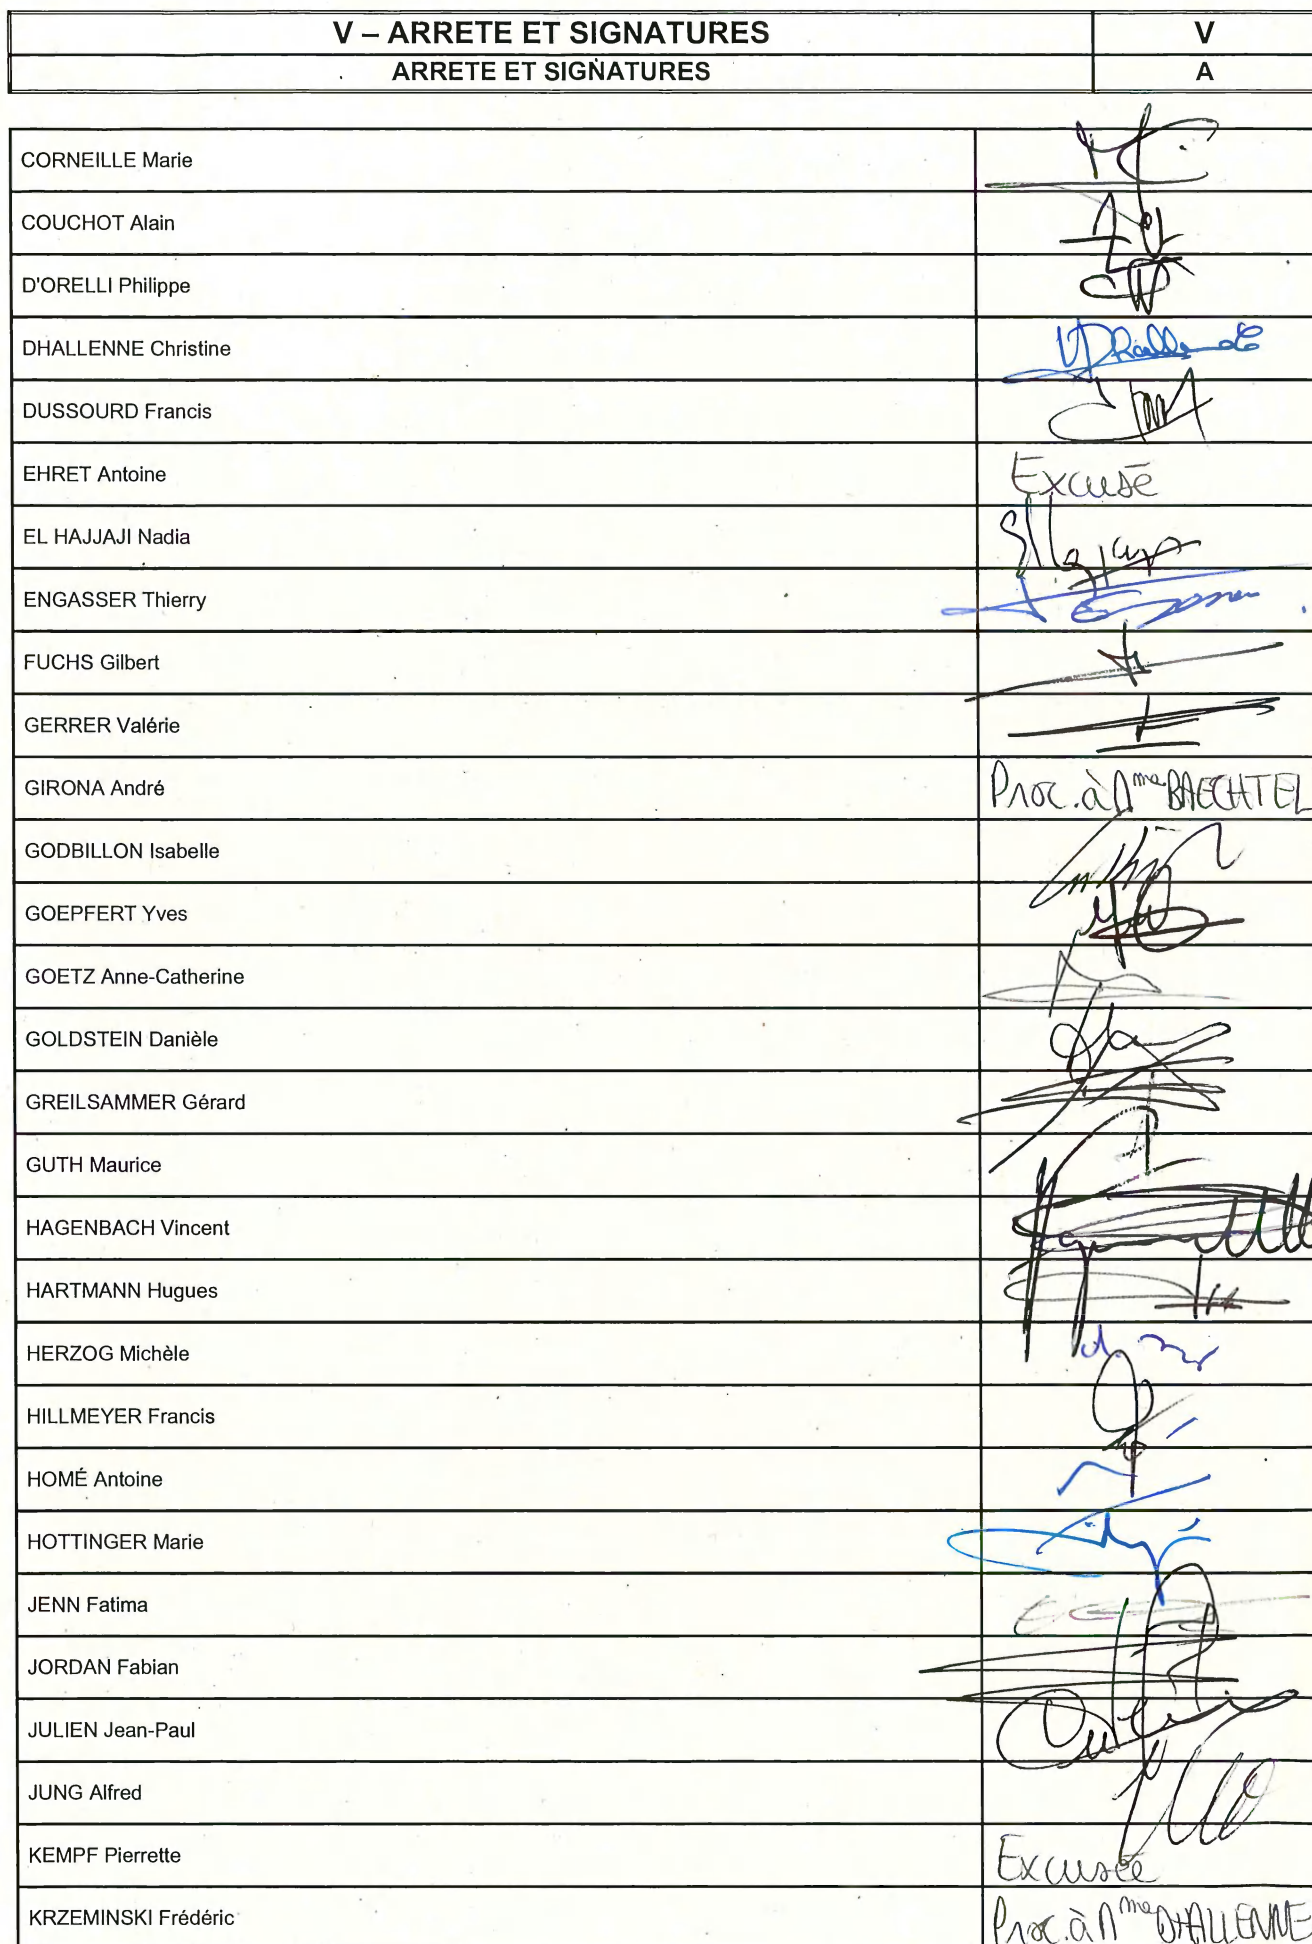 V – ARRETE ET SIGNATURES V
ARRETE ET SIGNATURES A
CORNEILLE Marie
COUCHOT Alain
D'ORELLI Philippe
DHALLENNE Christine
DUSSOURD Francis
EHRET Antoine Excusé
EL HAJJAJI Nadia
ENGASSER Thierry
FUCHS Gilbert
GERRER Valérie
GIRONA André Proc. à Mme BAECHTEL
GODBILLON Isabelle
GOEPFERT Yves
GOETZ Anne-Catherine
GOLDSTEIN Danièle
GREILSAMMER Gérard
GUTH Maurice
HAGENBACH Vincent
HARTMANN Hugues
HERZOG Michèle
HILLMEYER Francis
HOMÉ Antoine
HOTTINGER Marie
JENN Fatima
JORDAN Fabian
JULIEN Jean-Paul
JUNG Alfred
KEMPF Pierrette Excusée
KRZEMINSKI Frédéric Proc. à Mme DHALLENNE